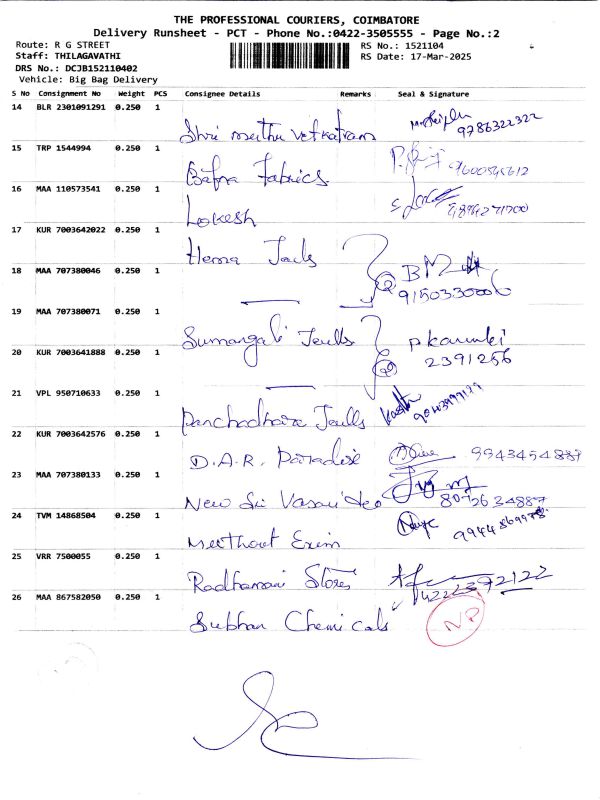 THE PROFESSIONAL COURIERS, COIMBATORE
Delivery Runsheet - PCT - Phone No.:0422-3505555 - Page No.:2
Route: R G STREET
RS No.: 1521104
Staff: THILAGAVATHI
RS Date: 17-Mar-2025
DRS No.: DCJB152110402
Vehicle: Big Bag Delivery
S No Consignment No Weight PCS Consignee Details Remarks Seal & Signature
14 BLR 2301091291 0.250 1
Shri 9786322322
15 TRP 1544994 0.250 1
Bafna Fabrics
16 MAA 110573541 0.250 1
Lokesh
17 KUR 7003642022 0.250 1
Hema
18 MAA 707380046 0.250 1
② 9150330006
19 MAA 707380071 0.250 1
Sumangali
20 KUR 7003641888 0.250 1
2391256
21 VPL 950710633 0.250 1
22 KUR 7003642576 0.250 1
D.A.R. Paradise 9943454887
23 MAA 707380133 0.250 1
New Sri Vasavi
24 TVM 14868504 0.250 1
Exim
25 VRR 7500055 0.250 1
Radhamani Stores
26 MAA 867582050 0.250 1
Subhan Chemicals NP